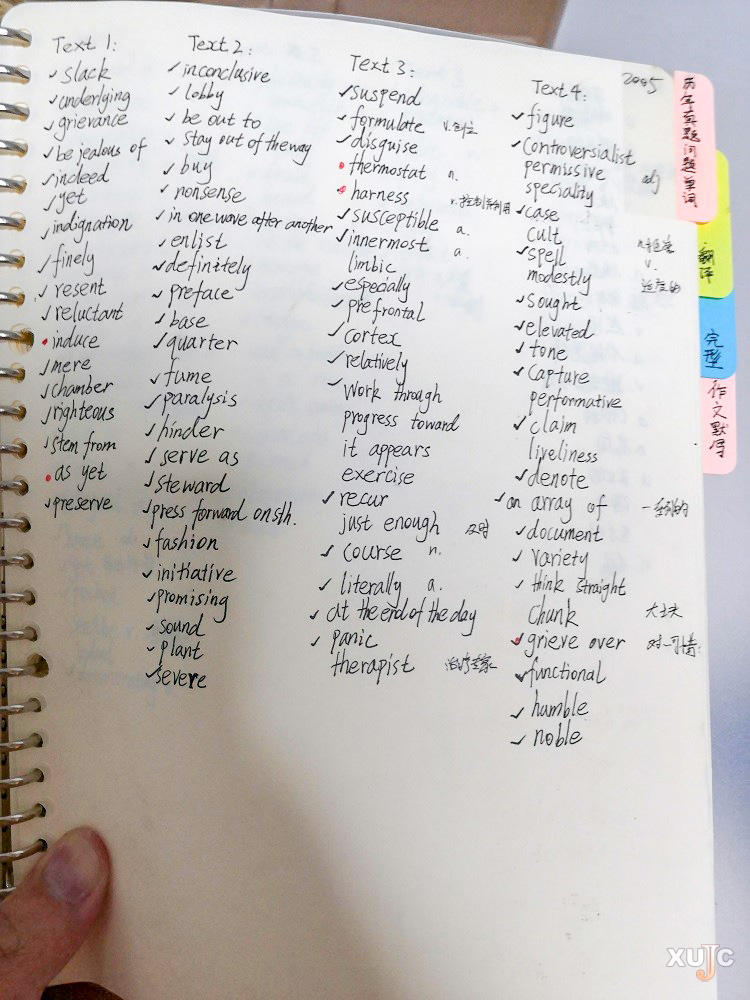 Text 1:
✓ slack
✓ underlying
✓ grievance
✓ be jealous of
✓ indeed
✓ yet
indignation
✓ finely
✓ resent
✓ reluctant
• induce
✓ mere
✓ chamber
✓ righteous
✓ stem from
• as yet
✓ preserve
Text 2:
✓ inconclusive
✓ lobby
✓ be out to
✓ stay out of the way
✓ buy
✓ nonsense
✓ in one wave after another
✓ enlist
✓ definitely
✓ preface
✓ base
✓ quarter
✓ fume
✓ paralysis
✓ hinder
✓ serve as
✓ steward
✓ press forward on sth.
✓ fashion
✓ initiative
✓ promising
✓ sound
✓ plant
✓ severe
Text 3:
✓ suspend
✓ formulate v.创立
✓ disguise
• thermostat n.
• harness v.控制并利用
✓ susceptible a.
✓ innermost a.
limbic
✓ especially
✓ prefrontal
✓ cortex
✓ relatively
✓ work through
progress toward
it appears
exercise
✓ recur
just enough 及时
✓ course n.
✓ literally a.
✓ at the end of the day
✓ panic
therapist 治疗专家
2005
Text 4:
✓ figure
✓ controversialist
permissive adj
speciality
✓ case
cult
✓ spell v.
modestly 适度的
✓ sought
✓ elevated
✓ tone
✓ capture
performative
✓ claim
liveliness
✓ denote
✓ an array of 一系列的
✓ document
✓ variety
✓ think straight
chunk 大块
✓ grieve over
✓ functional
✓ humble
✓ noble
历年真题问题单词
翻译
完型
作文默写
XUJC